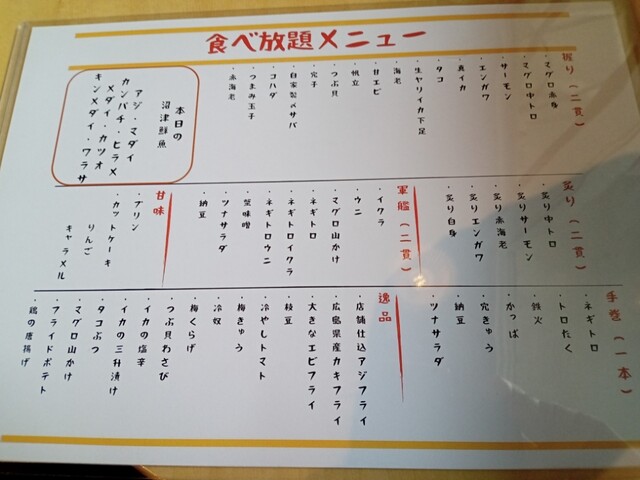 食べ放題メニュー
握り(二貫)
・マグロ赤身
・マグロ中トロ
・サーモン
・エンガワ
・真イカ
・タコ
・生ヤリイカ下足
・海老
・甘エビ
・帆立
・つぶ貝
・穴子
・自家製〆サバ
・コハダ
・つまみ玉子
・赤海老
本日の
沼津鮮魚
アジ・マダイ
カンパチ・ヒラメ
メダイ・カツオ
キンメダイ・ワラサ
炙り(二貫)
・炙り中トロ
・炙りサーモン
・炙り赤海老
・炙りエンガワ
・炙り白身
軍艦(二貫)
・イクラ
・ウニ
・マグロ山かけ
・ネギトロ
・ネギトロイクラ
・ネギトロウニ
・蟹味噌
・ツナサラダ
・納豆
甘味
・プリン
・カットケーキ
りんご
キャラメル
手巻(一本)
・ネギトロ
・トロたく
・鉄火
・かっぱ
・穴きゅう
・納豆
・ツナサラダ
逸品
・店舗仕込アジフライ
・広島県産カキフライ
・大きなエビフライ
・枝豆
・冷やしトマト
・梅きゅう
・冷奴
・梅くらげ
・つぶ貝わさび
・イカの塩辛
・イカの三升漬け
・タコぶつ
・マグロ山かけ
・フライドポテト
・鶏の唐揚げ